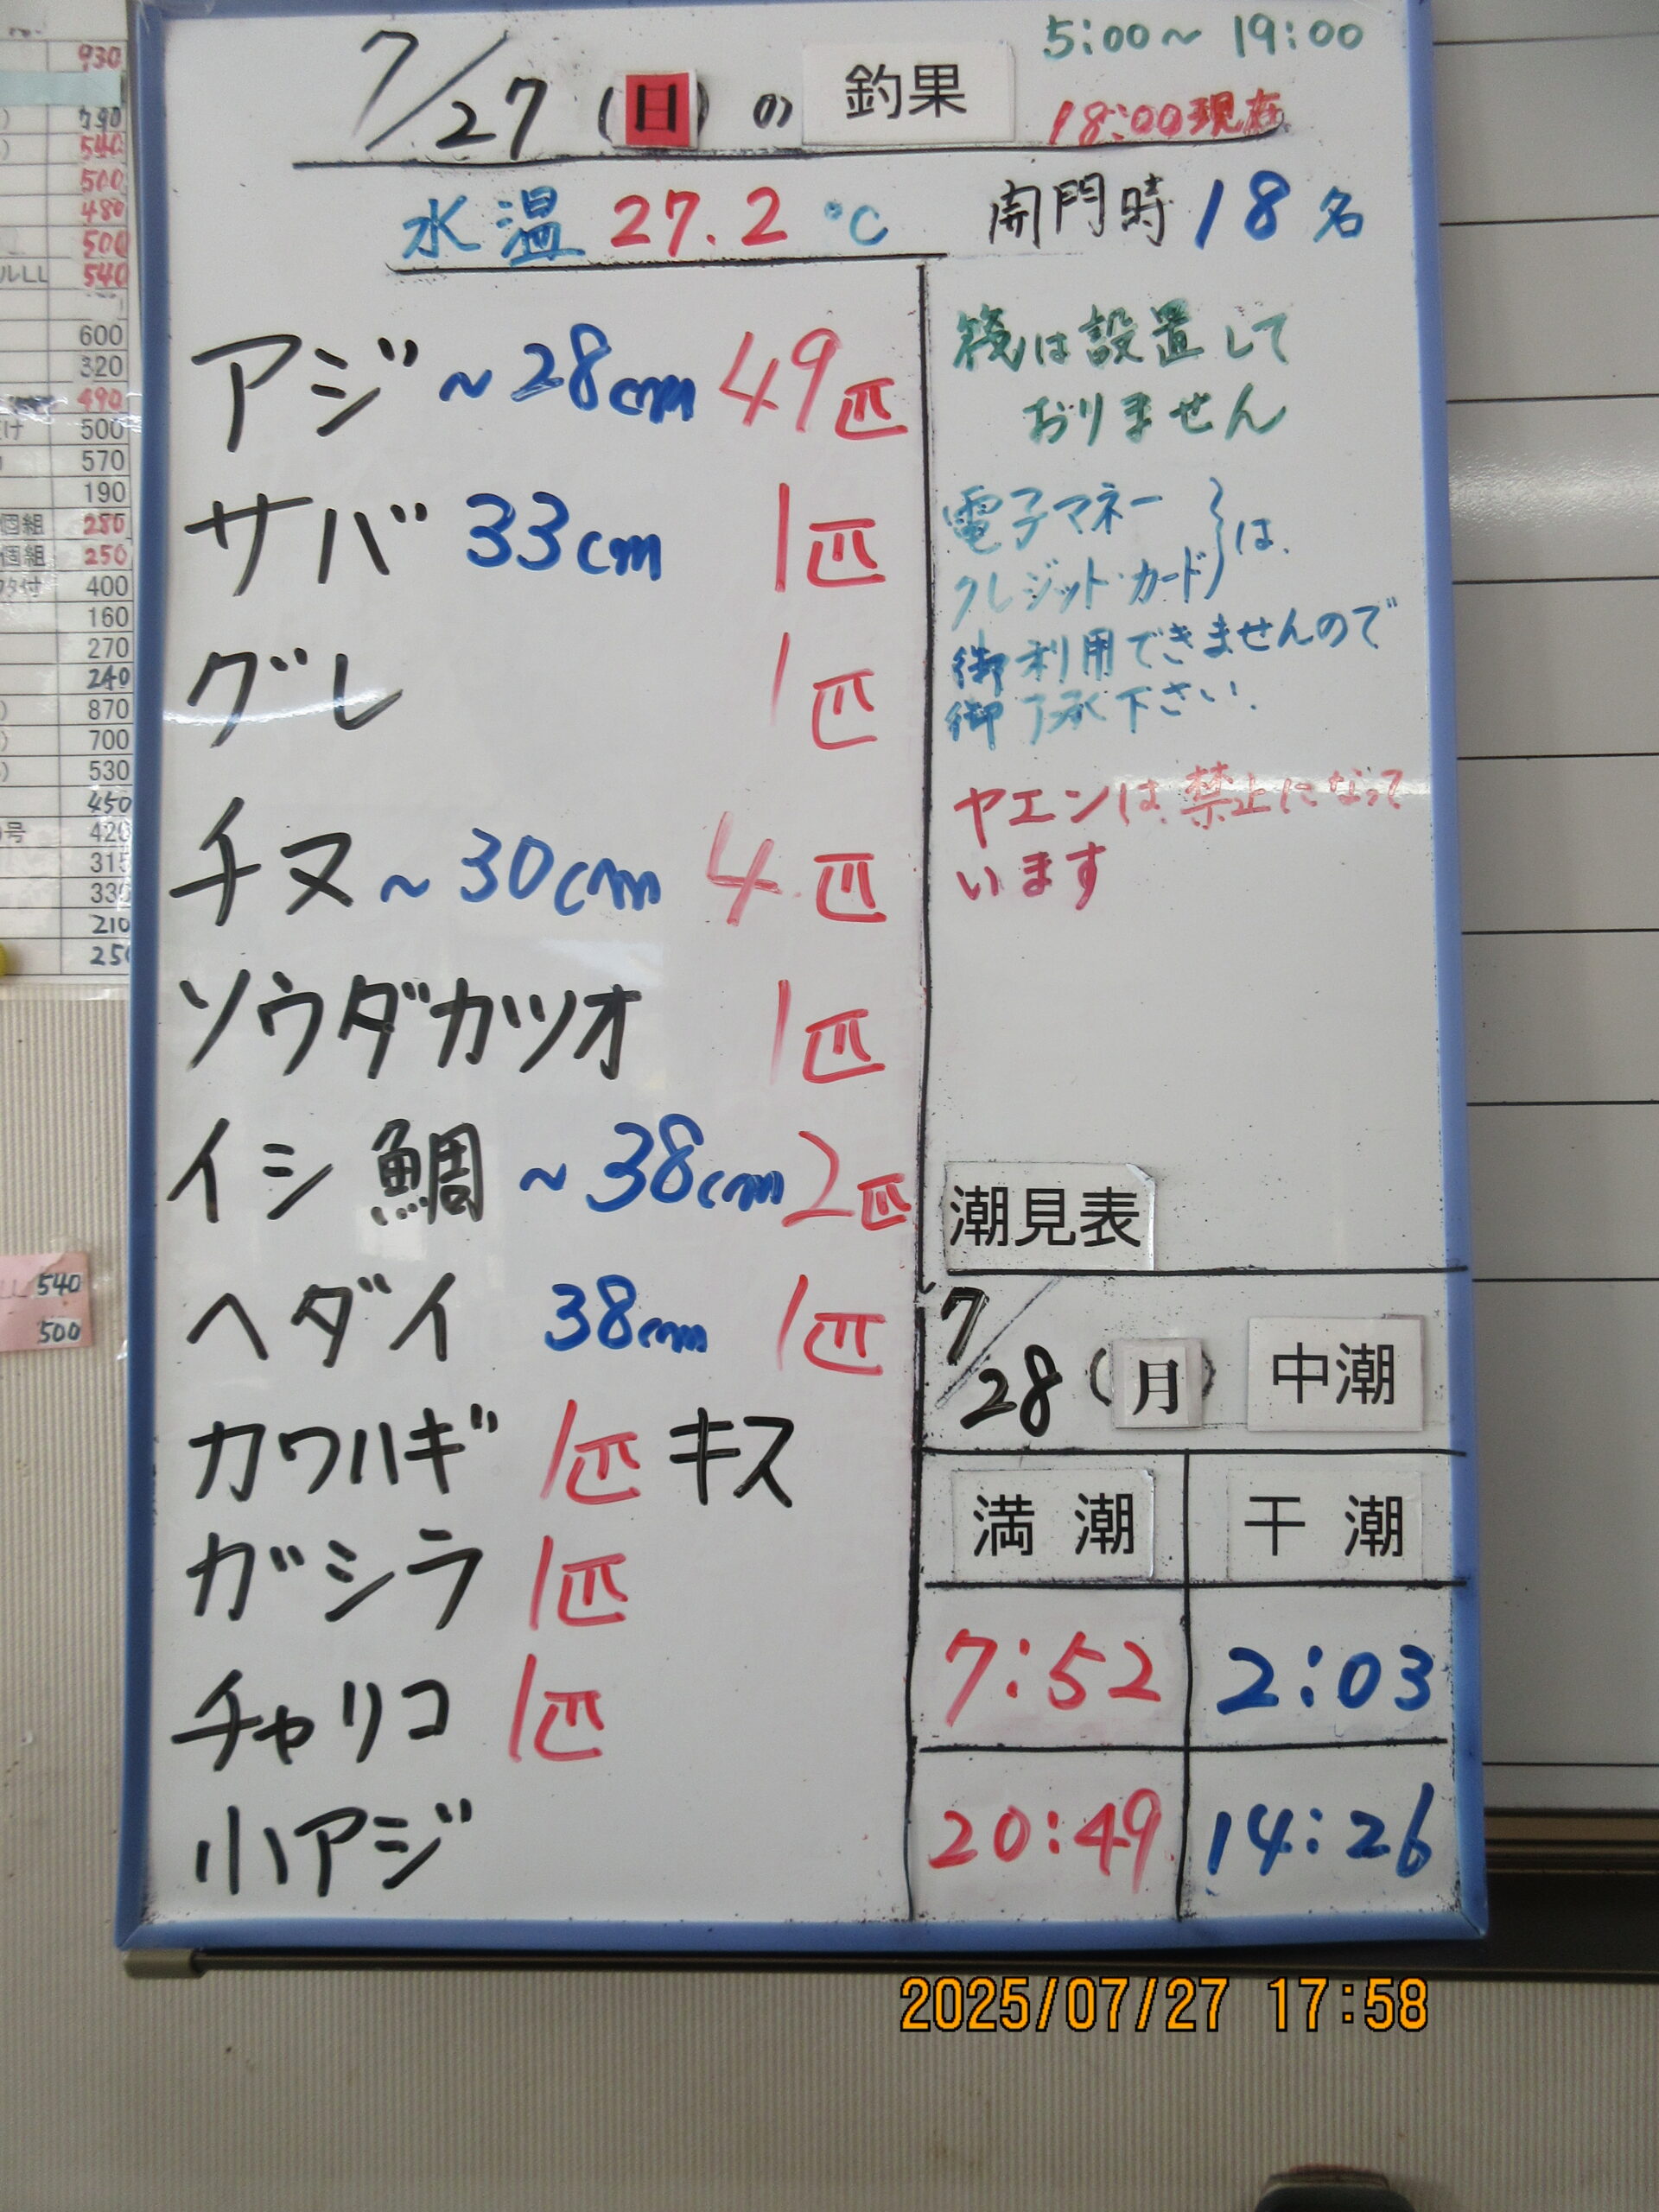 7/27（日）の 釣果
5:00～19:00
18:00現在
水温 27.2 ℃
開門時 18名
アジ ～28cm 49匹
サバ 33cm 1匹
グレ 1匹
チヌ ～30cm 4匹
ソウダカツオ 1匹
イシ鯛 ～38cm 2匹
ヘダイ 38cm 1匹
カワハギ 1匹 キス
ガシラ 1匹
チャリコ 1匹
小アジ
筏は設置して
おりません
電子マネー
クレジット・カード｝は
御利用できませんので
御了承下さい.
ヤエンは禁止になって
います
潮見表
7/28（月） 中潮
満潮 干潮
7:52 2:03
20:49 14:26
930
790
540
500
480
500
ルLL 540
600
320
490
500
570
190
個組 280
個組 250
400
160
270
240
870
700
530
450
号 420
315
330
210
250
LL 540
500
2025/07/27 17:58